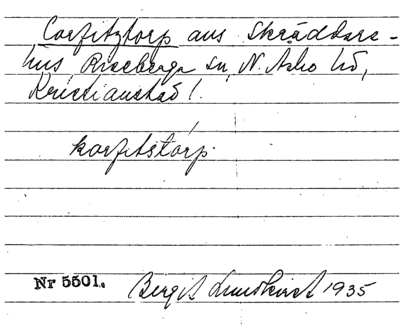 Corfitztorp aus Skräddare-
hus, Riseberga sn, N. Asbo hd,
Kristianstad l.
korfitstorp.
Nr 5501. Bergit Lundkvist 1935